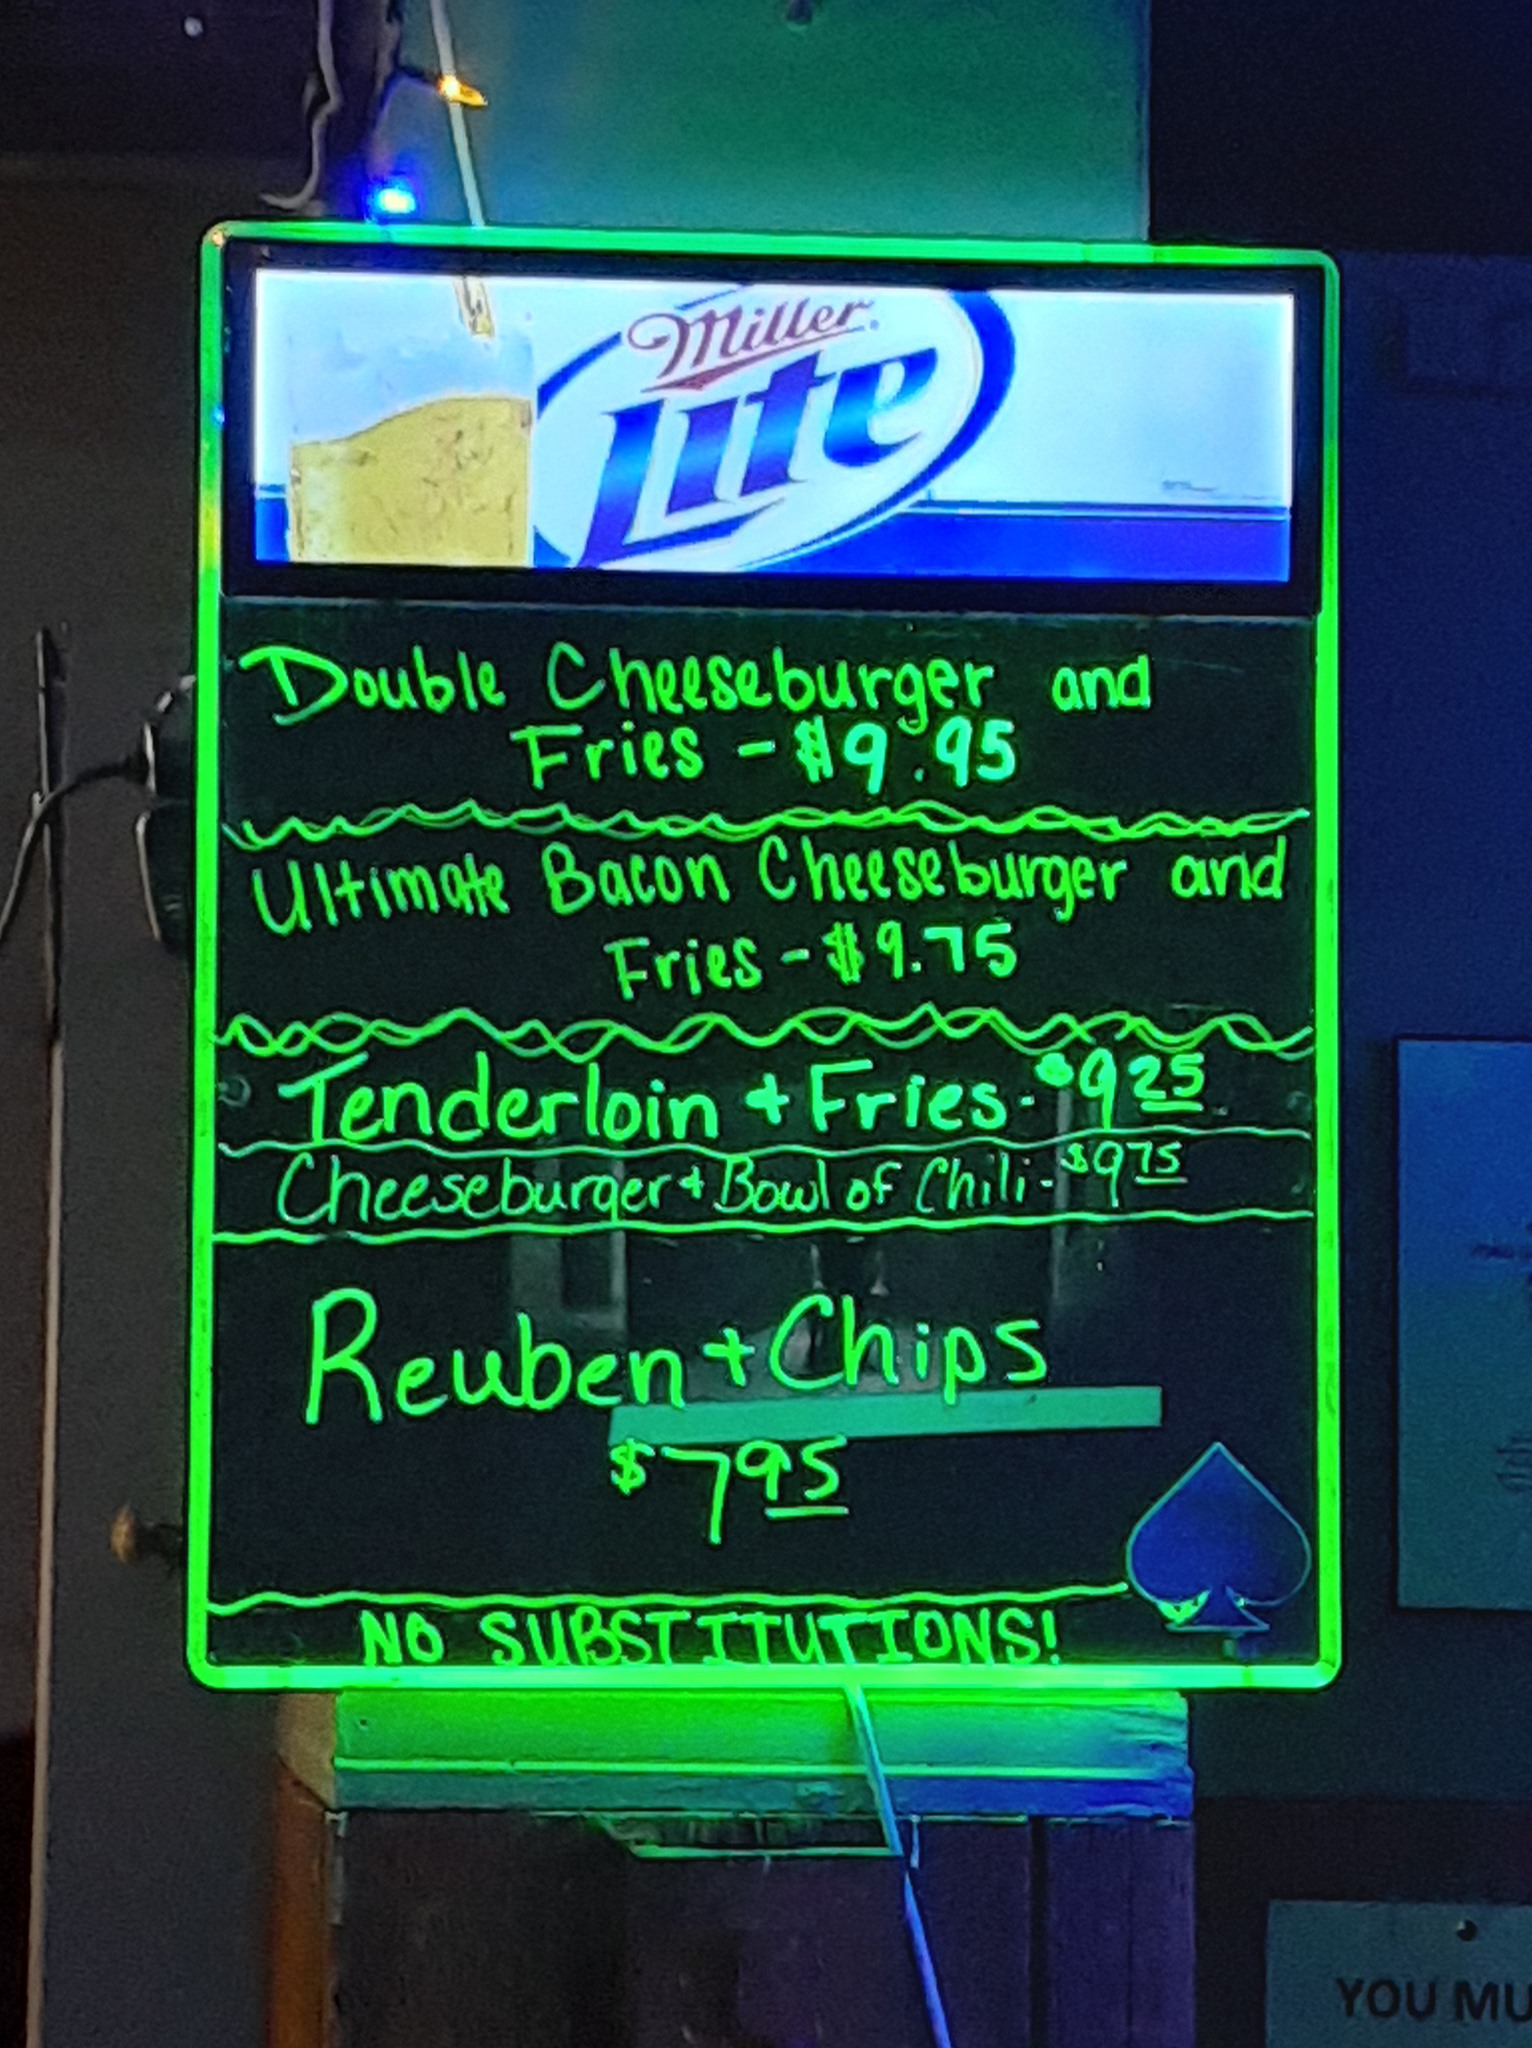 Miller
Lite
Double Cheeseburger and
Fries - $9.95
Ultimate Bacon Cheeseburger and
Fries - $9.75
Tenderloin + Fries - $9 25
Cheeseburger + Bowl of Chili - $9 75
Reuben + Chips
$7 95
NO SUBSTITUTIONS!
YOU MU